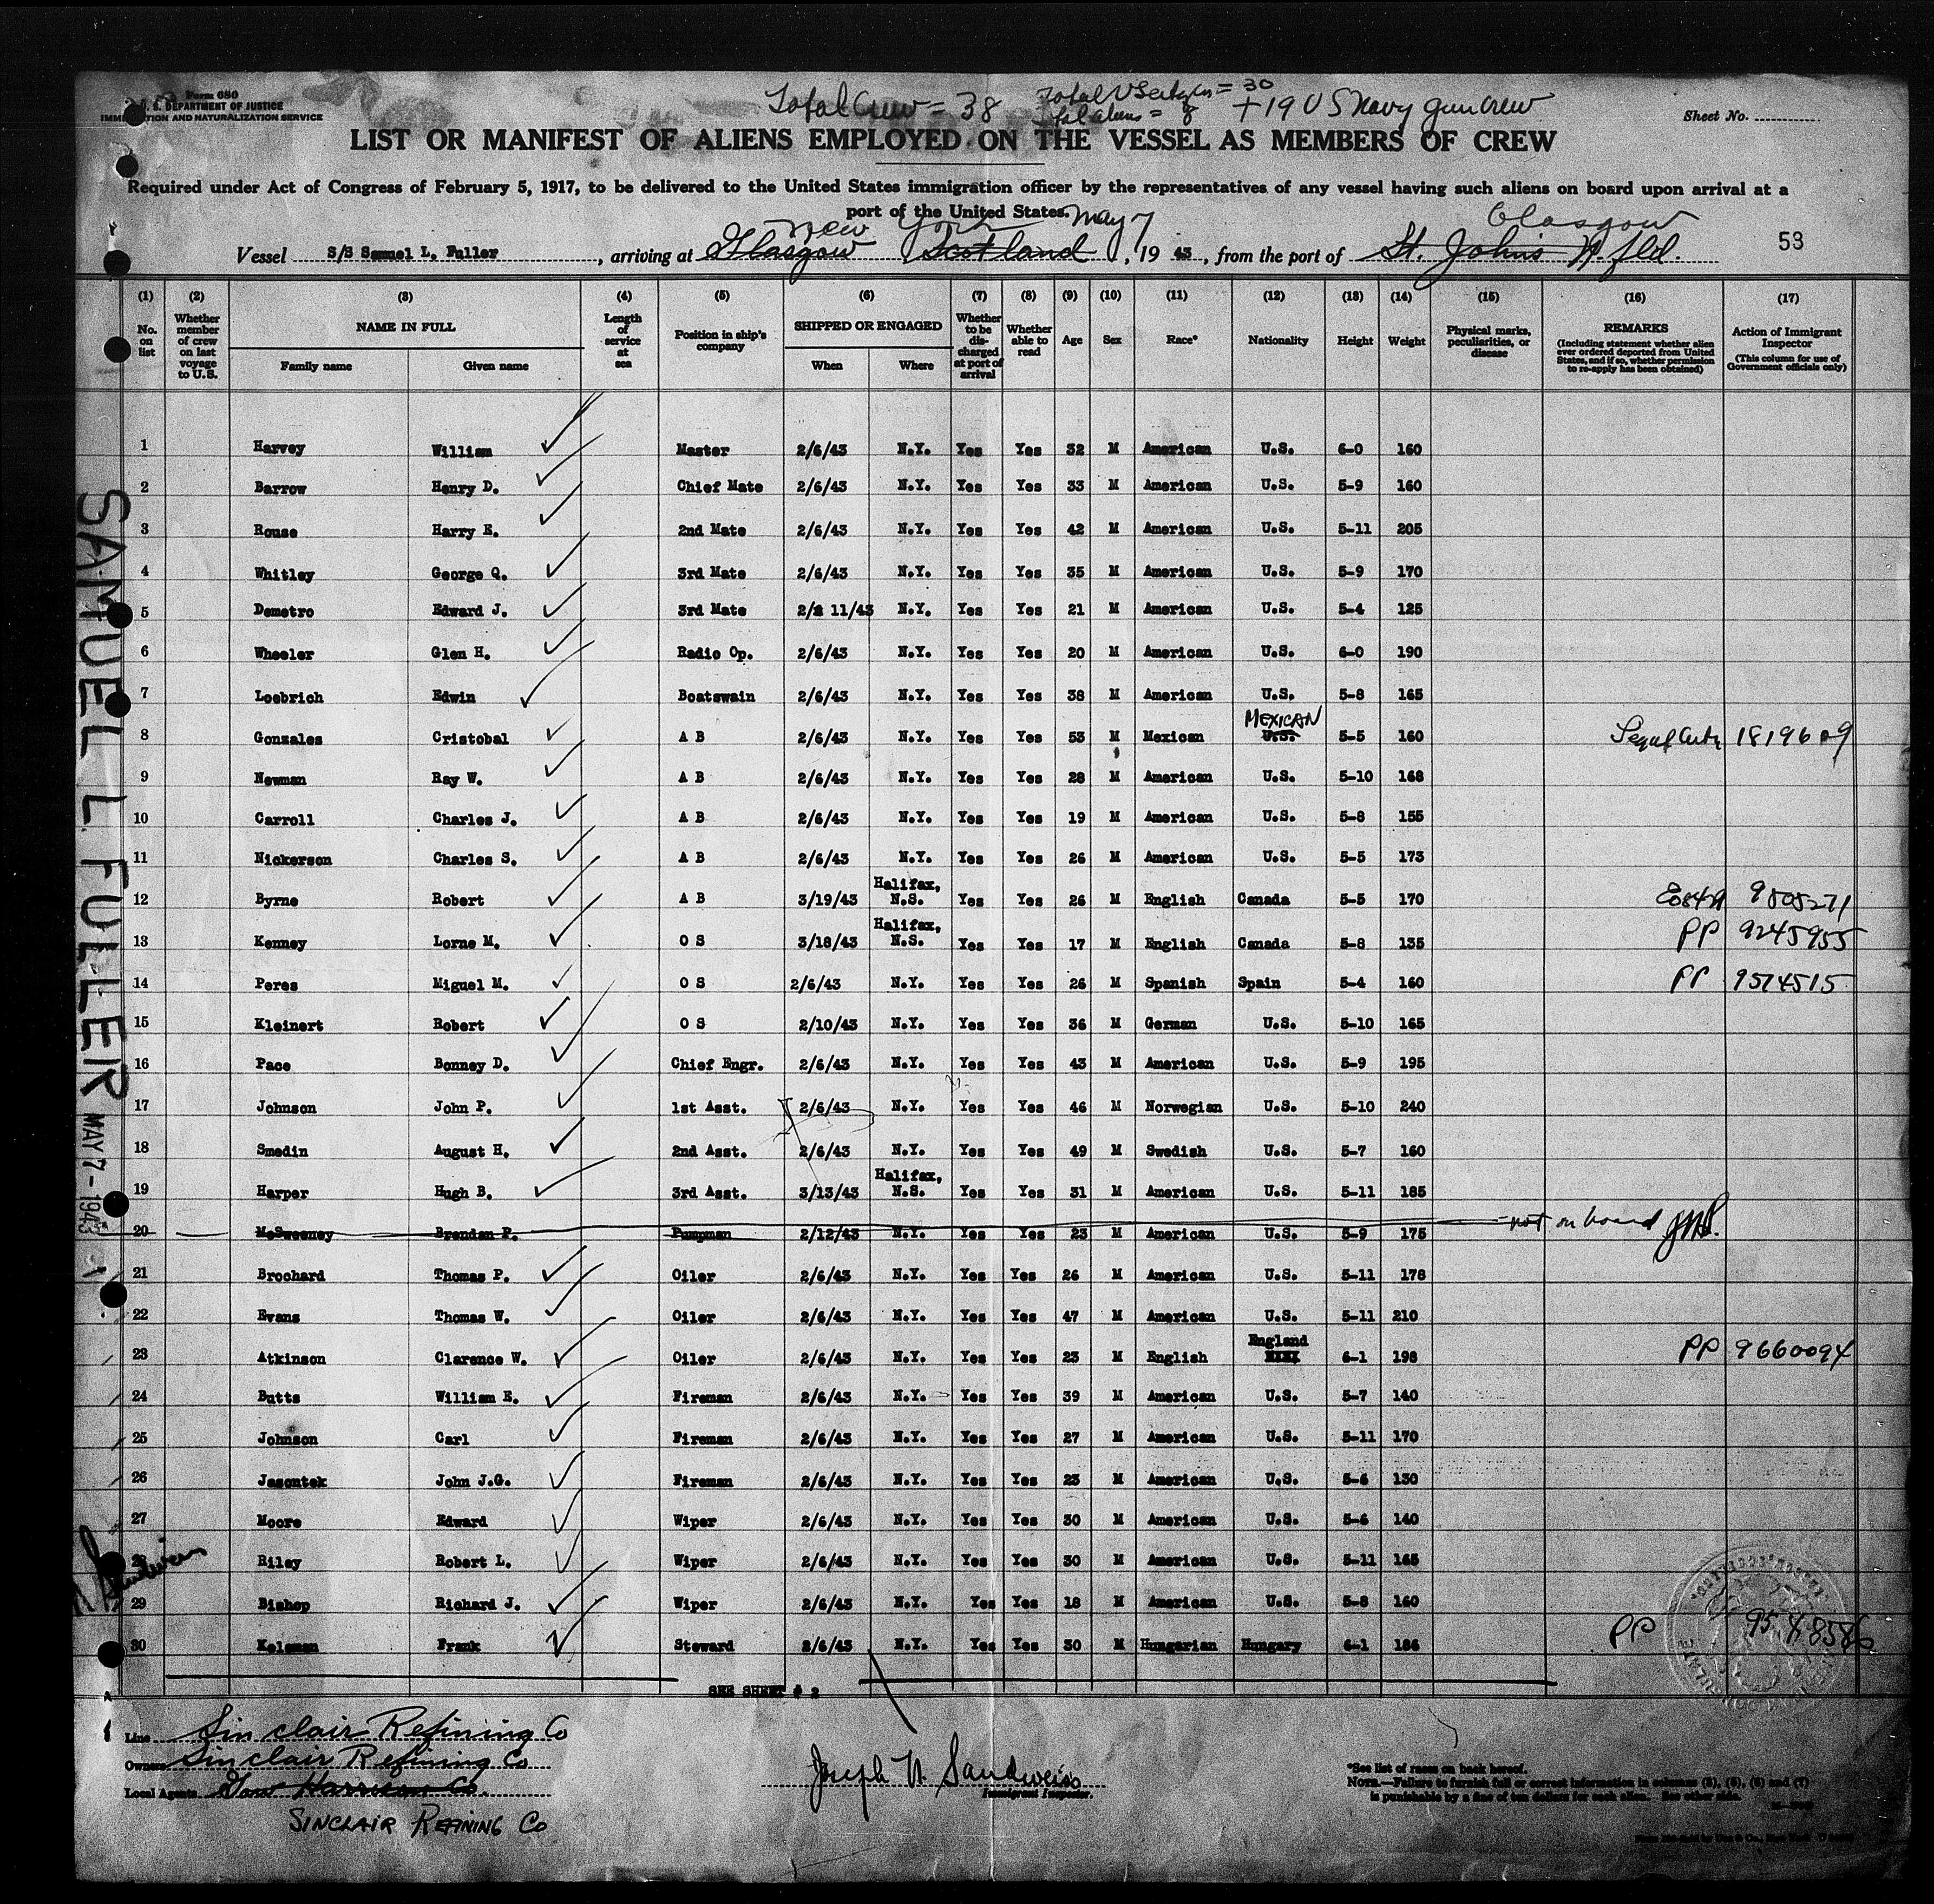 Form 680
U. S. DEPARTMENT OF JUSTICE
IMMIGRATION AND NATURALIZATION SERVICE
Total Crew = 38
= 30
Total aliens = 8
+ 19 US Navy gun crew
Sheet No.
LIST OR MANIFEST OF ALIENS EMPLOYED ON THE VESSEL AS MEMBERS OF CREW
Required under Act of Congress of February 5, 1917, to be delivered to the United States immigration officer by the representatives of any vessel having such aliens on board upon arrival at a
port of the United States.
New York May 7 Glasgow
Vessel S/S Samuel L. Fuller, arriving at Glasgow Scotland, 19 43, from the port of St. Johns N. fld. 53
(1) (2) (3) (4) (5) (6) (7) (8) (9) (10) (11) (12) (13) (14) (15) (16) (17)
No. on list
Whether member of crew on last voyage to U.S.
NAME IN FULL
Family name Given name
Length of service at sea
Position in ship's company
SHIPPED OR ENGAGED
When Where
Whether to be discharged at port of arrival
Whether able to read
Age Sex Race* Nationality Height Weight
Physical marks, peculiarities, or disease
REMARKS
(Including statement whether alien ever ordered deported from United States, and if so, whether permission to re-apply has been obtained)
Action of Immigrant Inspector
(This column for use of Government officials only)
1 Harvey William Master 2/6/43 N.Y. Yes Yes 32 M American U.S. 6-0 160
2 Barrow Henry D. Chief Mate 2/6/43 N.Y. Yes Yes 33 M American U.S. 5-9 160
3 Rouse Harry E. 2nd Mate 2/6/43 N.Y. Yes Yes 42 M American U.S. 5-11 205
4 Whitley George Q. 3rd Mate 2/6/43 N.Y. Yes Yes 35 M American U.S. 5-9 170
5 Demetro Edward J. 3rd Mate 2/2 11/43 N.Y. Yes Yes 21 M American U.S. 5-4 125
6 Wheeler Glen H. Radio Op. 2/6/43 N.Y. Yes Yes 20 M American U.S. 6-0 190
7 Loebrich Edwin Boatswain 2/6/43 N.Y. Yes Yes 38 M American U.S. 5-8 165
MEXICAN
8 Gonzales Cristobal A B 2/6/43 N.Y. Yes Yes 53 M Mexican U.S. 5-5 160 1819609
9 Newman Ray W. A B 2/6/43 N.Y. Yes Yes 28 M American U.S. 5-10 168
10 Carroll Charles J. A B 2/6/43 N.Y. Yes Yes 19 M American U.S. 5-8 155
11 Nickerson Charles S. A B 2/6/43 N.Y. Yes Yes 26 M American U.S. 5-5 173
12 Byrne Robert A B 3/19/43 Halifax, N.S. Yes Yes 26 M English Canada 5-5 170 9505271
13 Kenney Lorne M. O S 3/18/43 Halifax, N.S. Yes Yes 17 M English Canada 5-8 135 PP 9245955
14 Peres Miguel M. O S 2/6/43 N.Y. Yes Yes 26 M Spanish Spain 5-4 160 PP 9574515
15 Kleinert Robert O S 2/10/43 N.Y. Yes Yes 36 M German U.S. 5-10 165
16 Pace Bonney D. Chief Engr. 2/6/43 N.Y. Yes Yes 43 M American U.S. 5-9 195
17 Johnson John P. 1st Asst. 2/6/43 N.Y. Yes Yes 46 M Norwegian U.S. 5-10 240
18 Smedin August H. 2nd Asst. 2/6/43 N.Y. Yes Yes 49 M Swedish U.S. 5-7 160
19 Harper Hugh B. 3rd Asst. 3/13/43 Halifax, N.S. Yes Yes 31 M American U.S. 5-11 185
20 McSweeney Brendan P. Pumpman 2/12/43 N.Y. Yes Yes 23 M American U.S. 5-9 175 not on board
21 Brochard Thomas P. Oiler 2/6/43 N.Y. Yes Yes 26 M American U.S. 5-11 178
22 Evans Thomas W. Oiler 2/6/43 N.Y. Yes Yes 47 M American U.S. 5-11 210
23 Atkinson Clarence W. Oiler 2/6/43 N.Y. Yes Yes 23 M English England 6-1 198 PP 9660094
24 Butts William E. Fireman 2/6/43 N.Y. Yes Yes 39 M American U.S. 5-7 140
25 Johnson Carl Fireman 2/6/43 N.Y. Yes Yes 27 M American U.S. 5-11 170
26 Jasontek John J.G. Fireman 2/6/43 N.Y. Yes Yes 23 M American U.S. 5-6 130
27 Moore Edward Wiper 2/6/43 N.Y. Yes Yes 30 M American U.S. 5-6 140
28 Riley Robert L. Wiper 2/6/43 N.Y. Yes Yes 30 M American U.S. 5-11 165
29 Bishop Richard J. Wiper 2/6/43 N.Y. Yes Yes 18 M American U.S. 5-8 160
30 Keleman Frank Steward 2/6/43 N.Y. Yes Yes 30 M Hungarian Hungary 6-1 186 PP 9548586
SEE SHEET # 2
SAMUEL L. FULLER MAY 7 - 1943
Line Sinclair Refining Co
Owners Sinclair Refining Co
Local Agents
SINCLAIR REFINING CO
Joseph N. Sandweiss
Immigrant Inspector.
*See list of races on back hereof.
NOTE.—Failure to furnish full or correct information in columns (3), (5), (6) and (7)
is punishable by a fine of ten dollars for each alien. See other side.